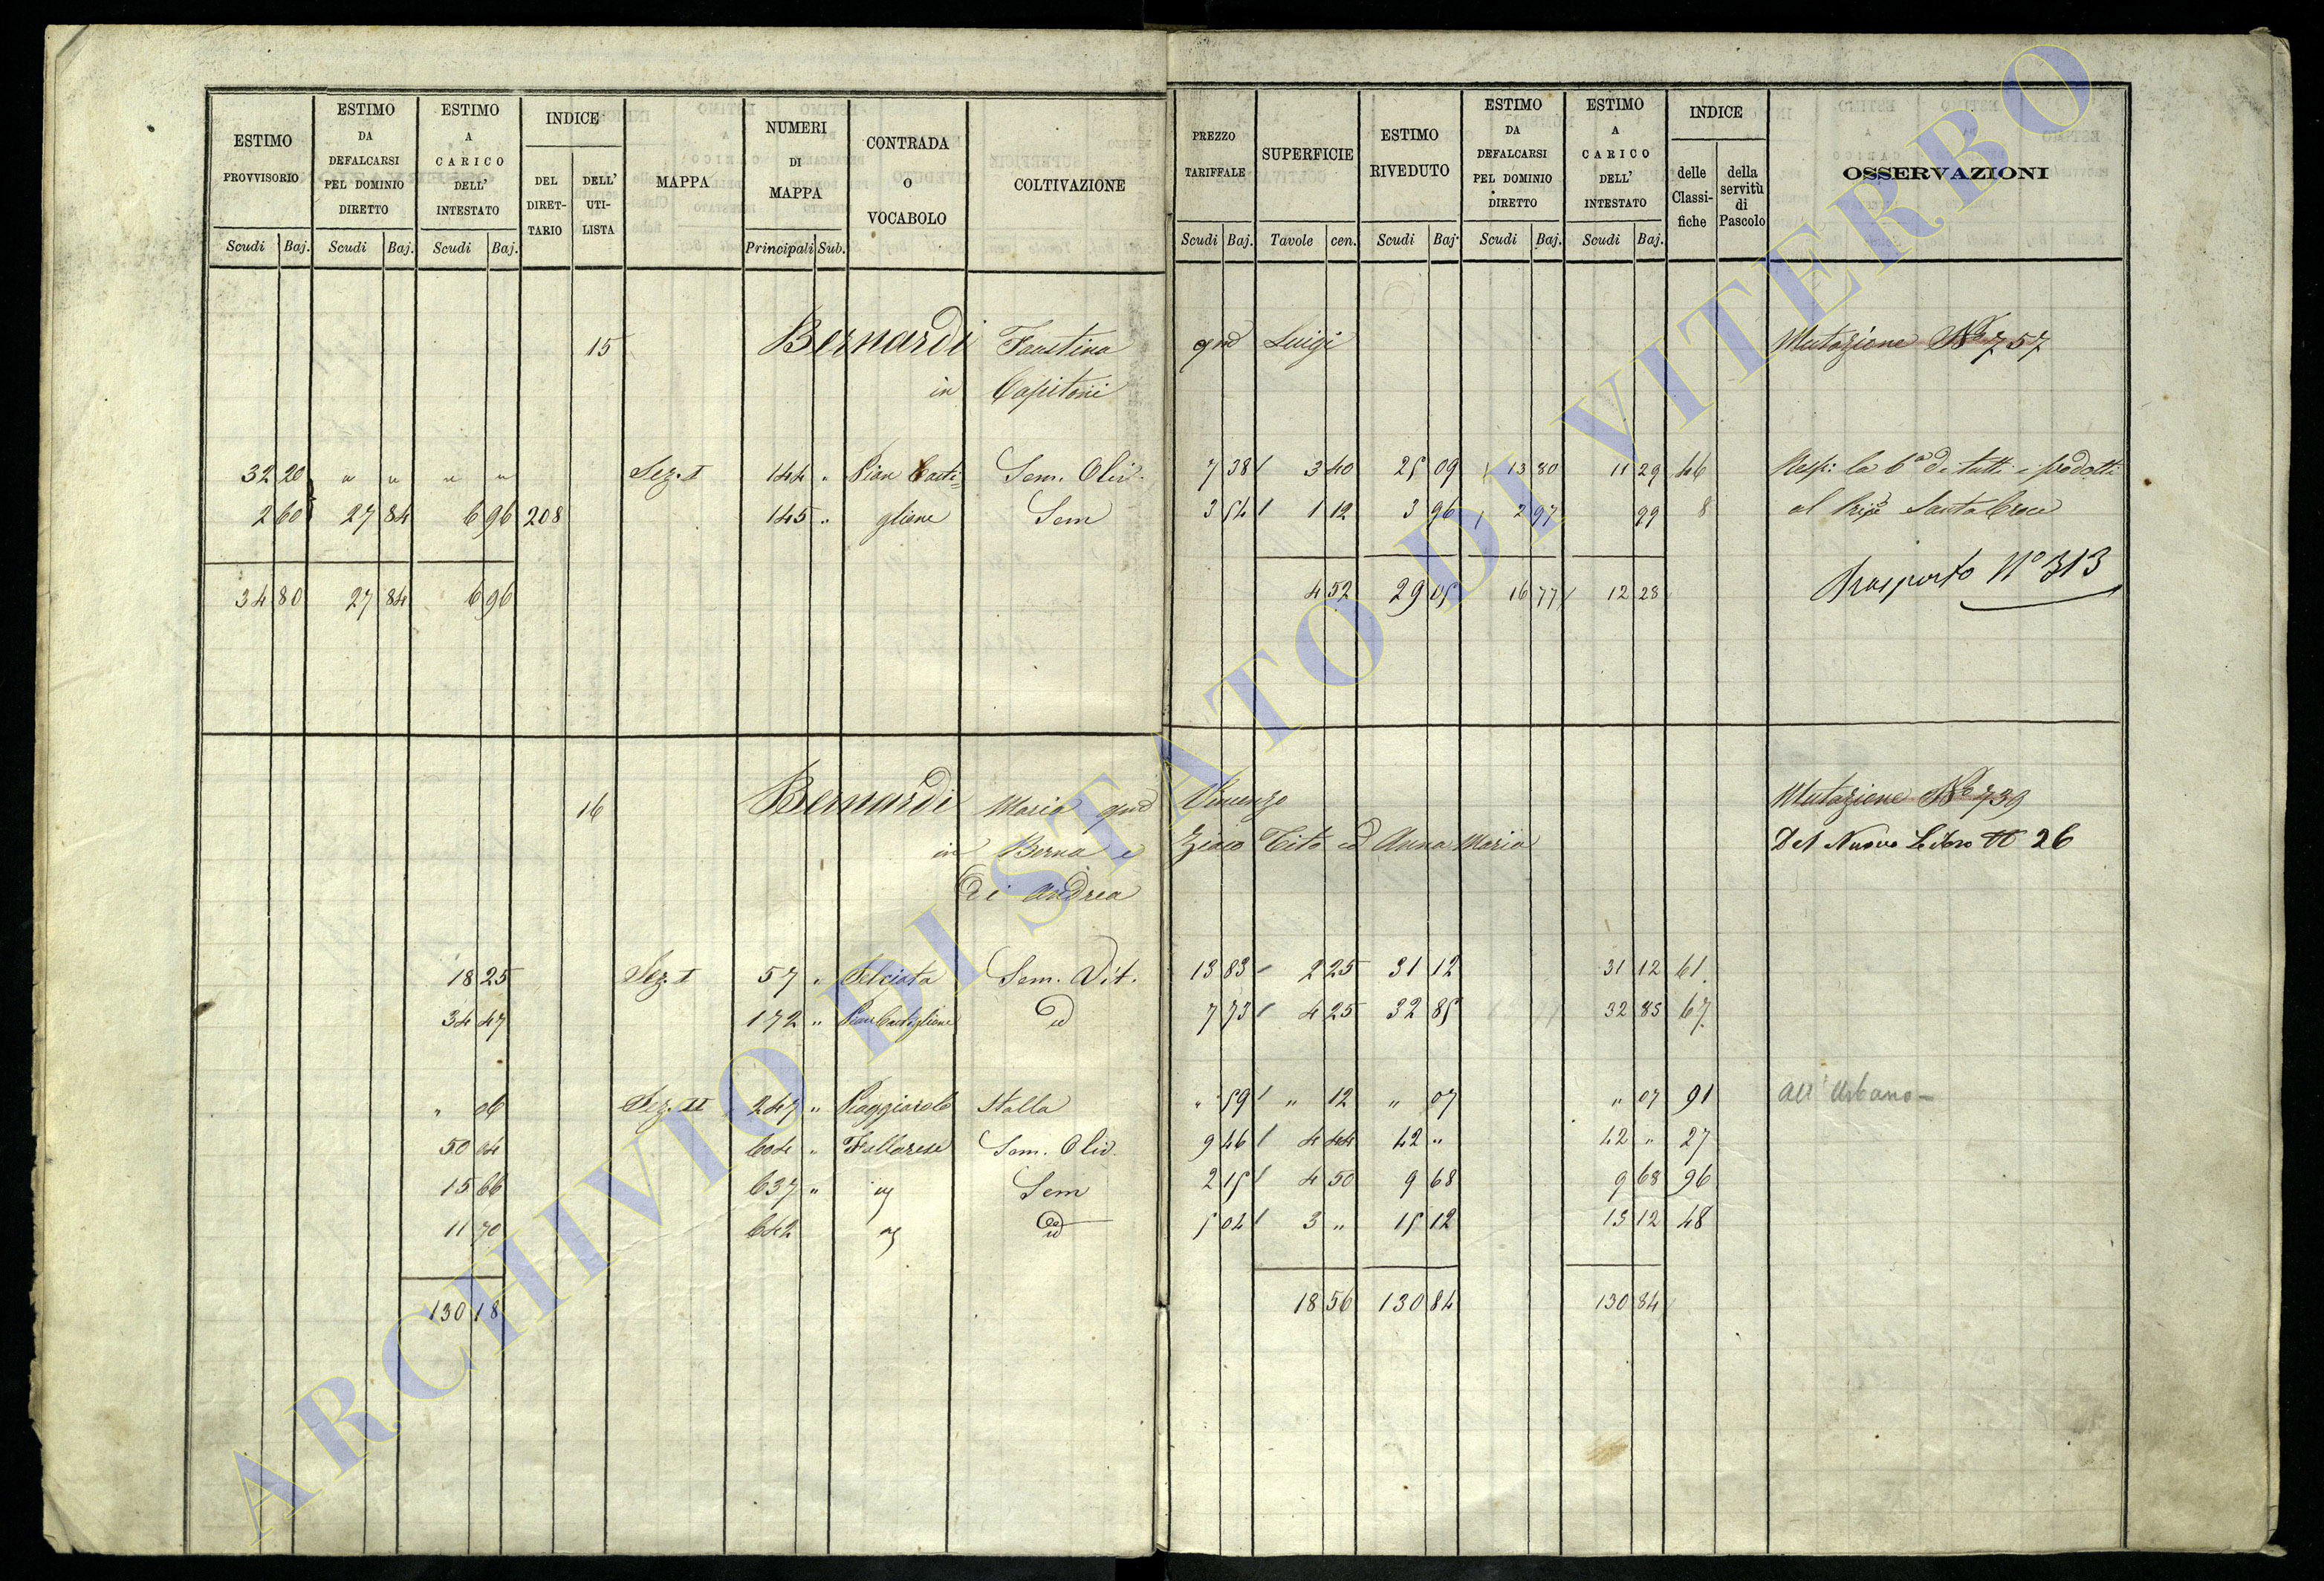 ESTIMO PROVVISORIO | ESTIMO DA DEFALCARSI PEL DOMINIO DIRETTO | ESTIMO A CARICO DELL' INTESTATO | INDICE | MAPPA | NUMERI DI MAPPA | CONTRADA O VOCABOLO | COLTIVAZIONE | PREZZO TARIFFALE | SUPERFICIE | ESTIMO RIVEDUTO | ESTIMO DA DEFALCARSI PEL DOMINIO DIRETTO | ESTIMO A CARICO DELL' INTESTATO | INDICE | OSSERVAZIONI
DEL DIRET-TARIO | DELL' UTI-LISTA | delle Classi-fiche | della servitù di Pascolo
Scudi Baj. | Scudi Baj. | Scudi Baj. | Principali Sub. | Scudi Baj. | Tavole cen. | Scudi Baj. | Scudi Baj. | Scudi Baj.
15 Bernardi Faustina qm Luigi Mutazione No 757
in Capitoni
32 20 " " " " Sez. I 144 " Pian Casti= Sem. Oliv. 7 38 3 40 25 09 13 80 11 29 46 Resp: la 6a di tutti i prodotti
2 60 27 84 6 96 208 145 " glione Sem 3 54 1 12 3 96 2 97 99 8 al Pripe Santa Croce
Trasporto No 313
34 80 27 84 6 96 4 52 29 05 16 77 12 28
16 Bernardi Maria qm Vincenzo Mutazione No 739
in Berna e Tito ed Anna Maria Del Nuovo Libro N 26
Di Andrea
18 25 Sez. I 57 " Selciata Sem. Vit. 13 83 2 25 31 12 31 12 61
34 47 172 " Pian Castiglione id 7 73 4 25 32 85 32 85 67
" 06 Sez. II 247 " Piaggiarolo Stalla " 59 " 12 " 07 " 07 91 All'Urbano
50 04 604 " Sem. Oliv. 9 46 4 44 42 " 42 " 27
15 66 637 " Sem 2 15 4 50 9 68 9 68 96
11 70 642 id 5 04 3 " 15 12 15 12 48
130 18 18 56 130 84 130 84
ARCHIVIO DI STATO DI VITERBO